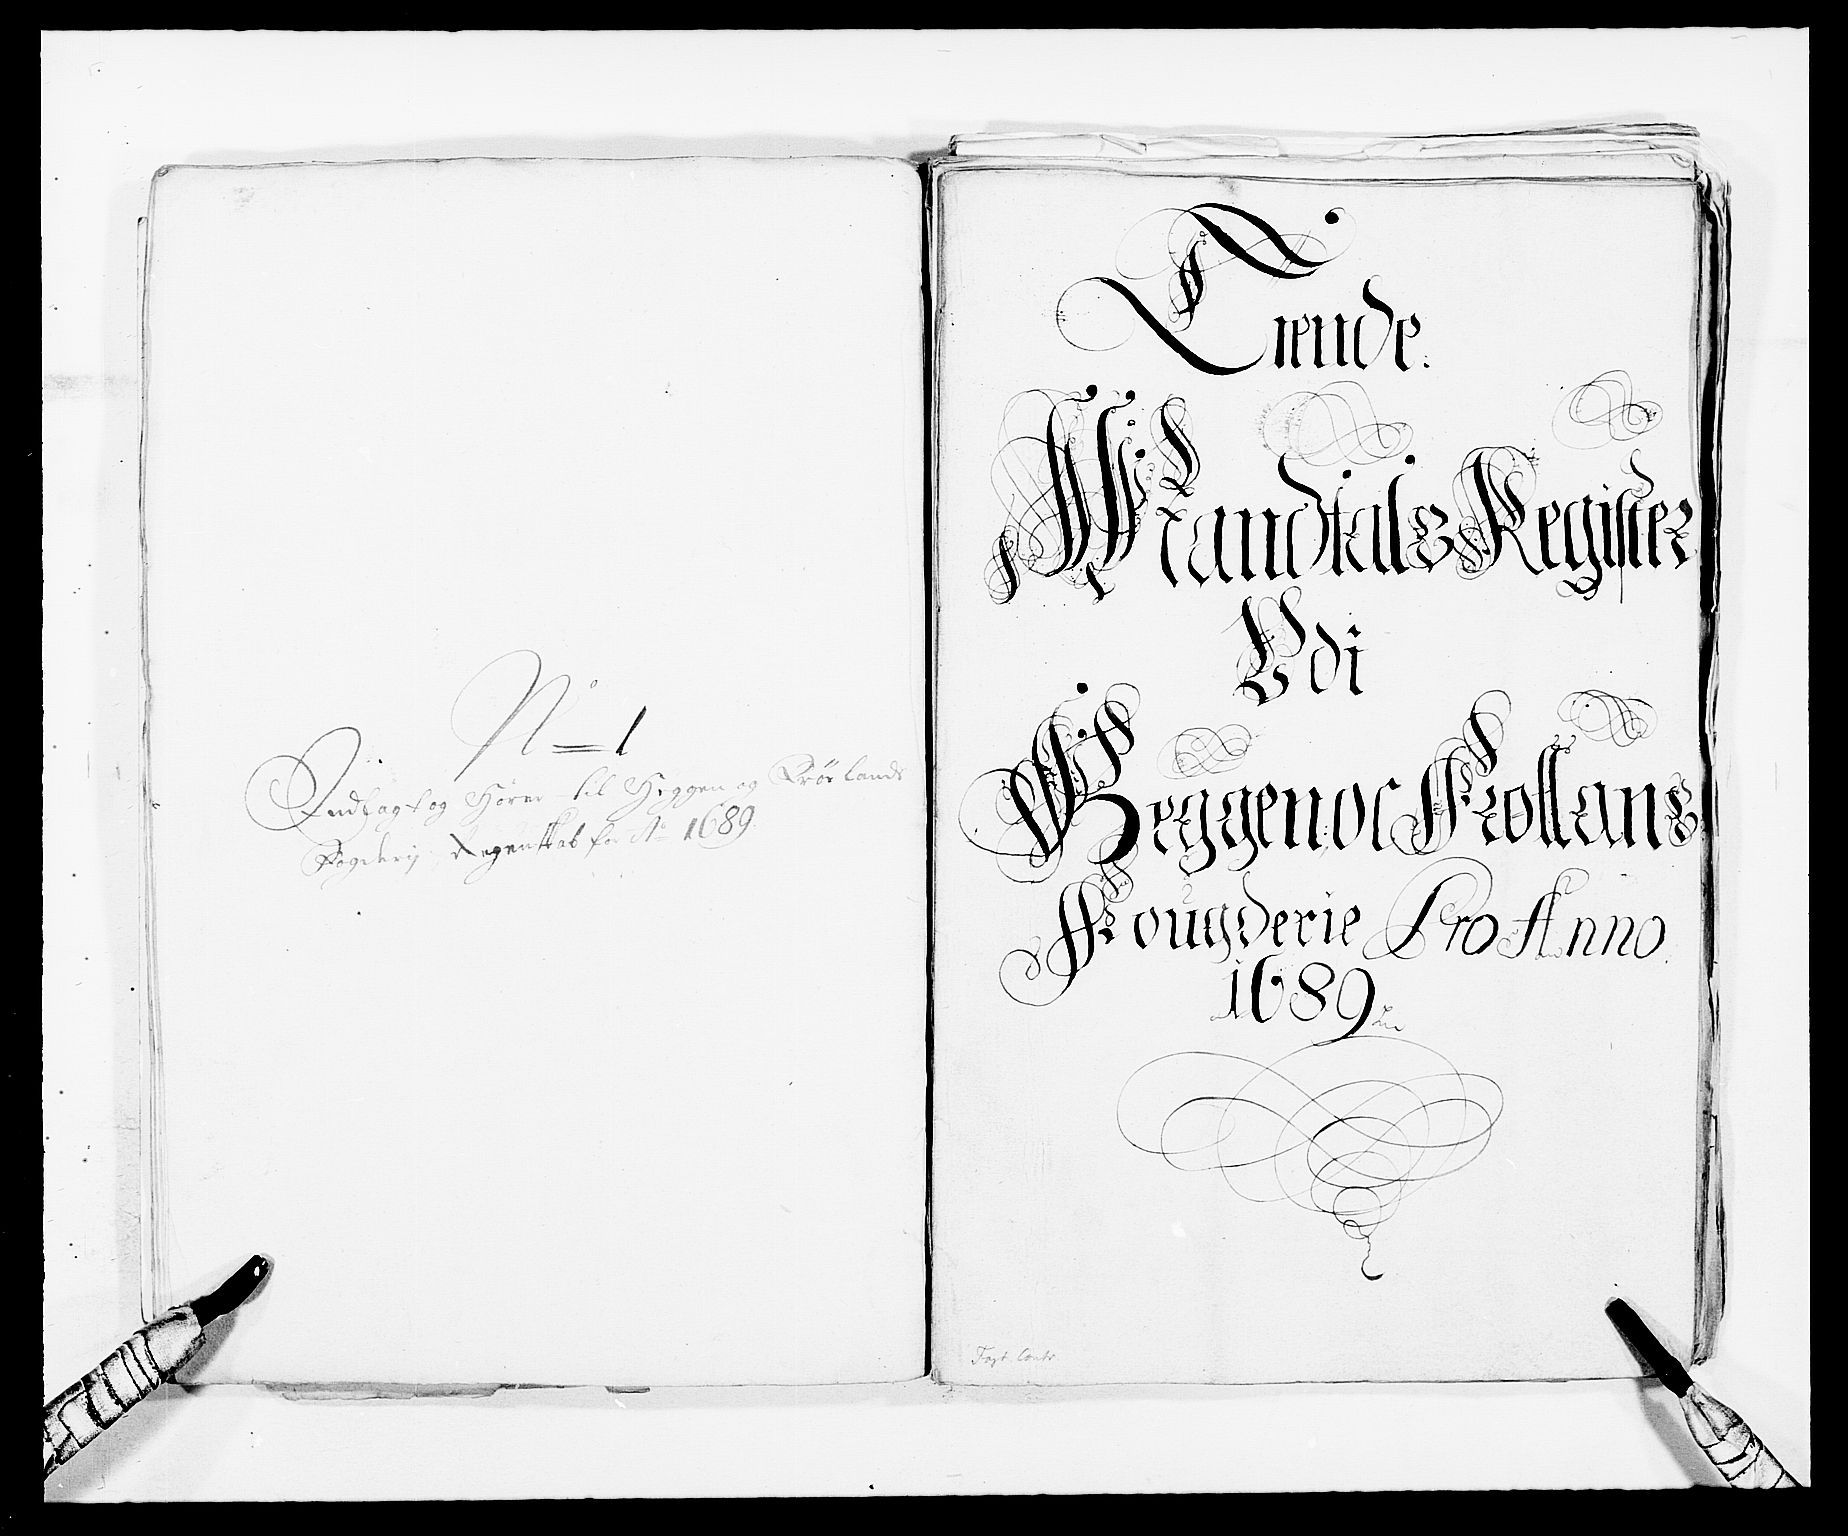 No 1
Indlagt og Hörer til Heggen og Fröslands
Fogderij Regenskab for Ao 1689
Tiende
Mandtals Register
Vdi
Heggen oc Frollans
Fougderie Pro Anno
1689